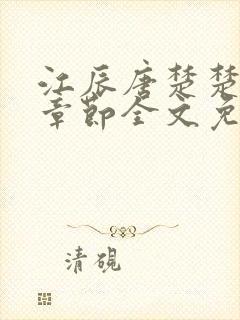 江辰唐楚楚
章节全文免
清砚